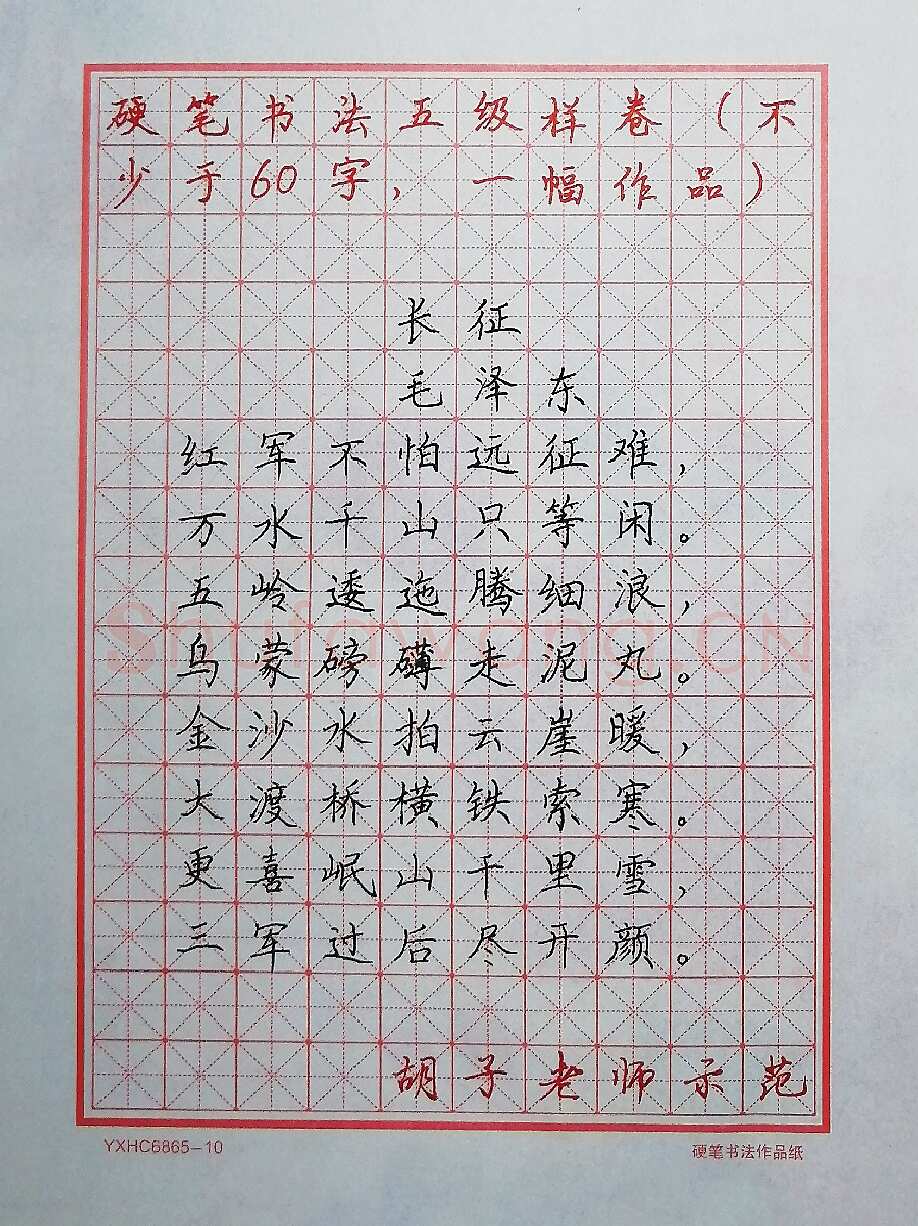 硬笔书法五级样卷（不
少于60字，一幅作品）
长征
毛泽东
红军不怕远征难，
万水千山只等闲。
五岭逶迤腾细浪，
乌蒙磅礴走泥丸。
金沙水拍云崖暖，
大渡桥横铁索寒。
更喜岷山千里雪，
三军过后尽开颜。
胡子老师示范
YXHC6865-10
硬笔书法作品纸
Shufawang.CN